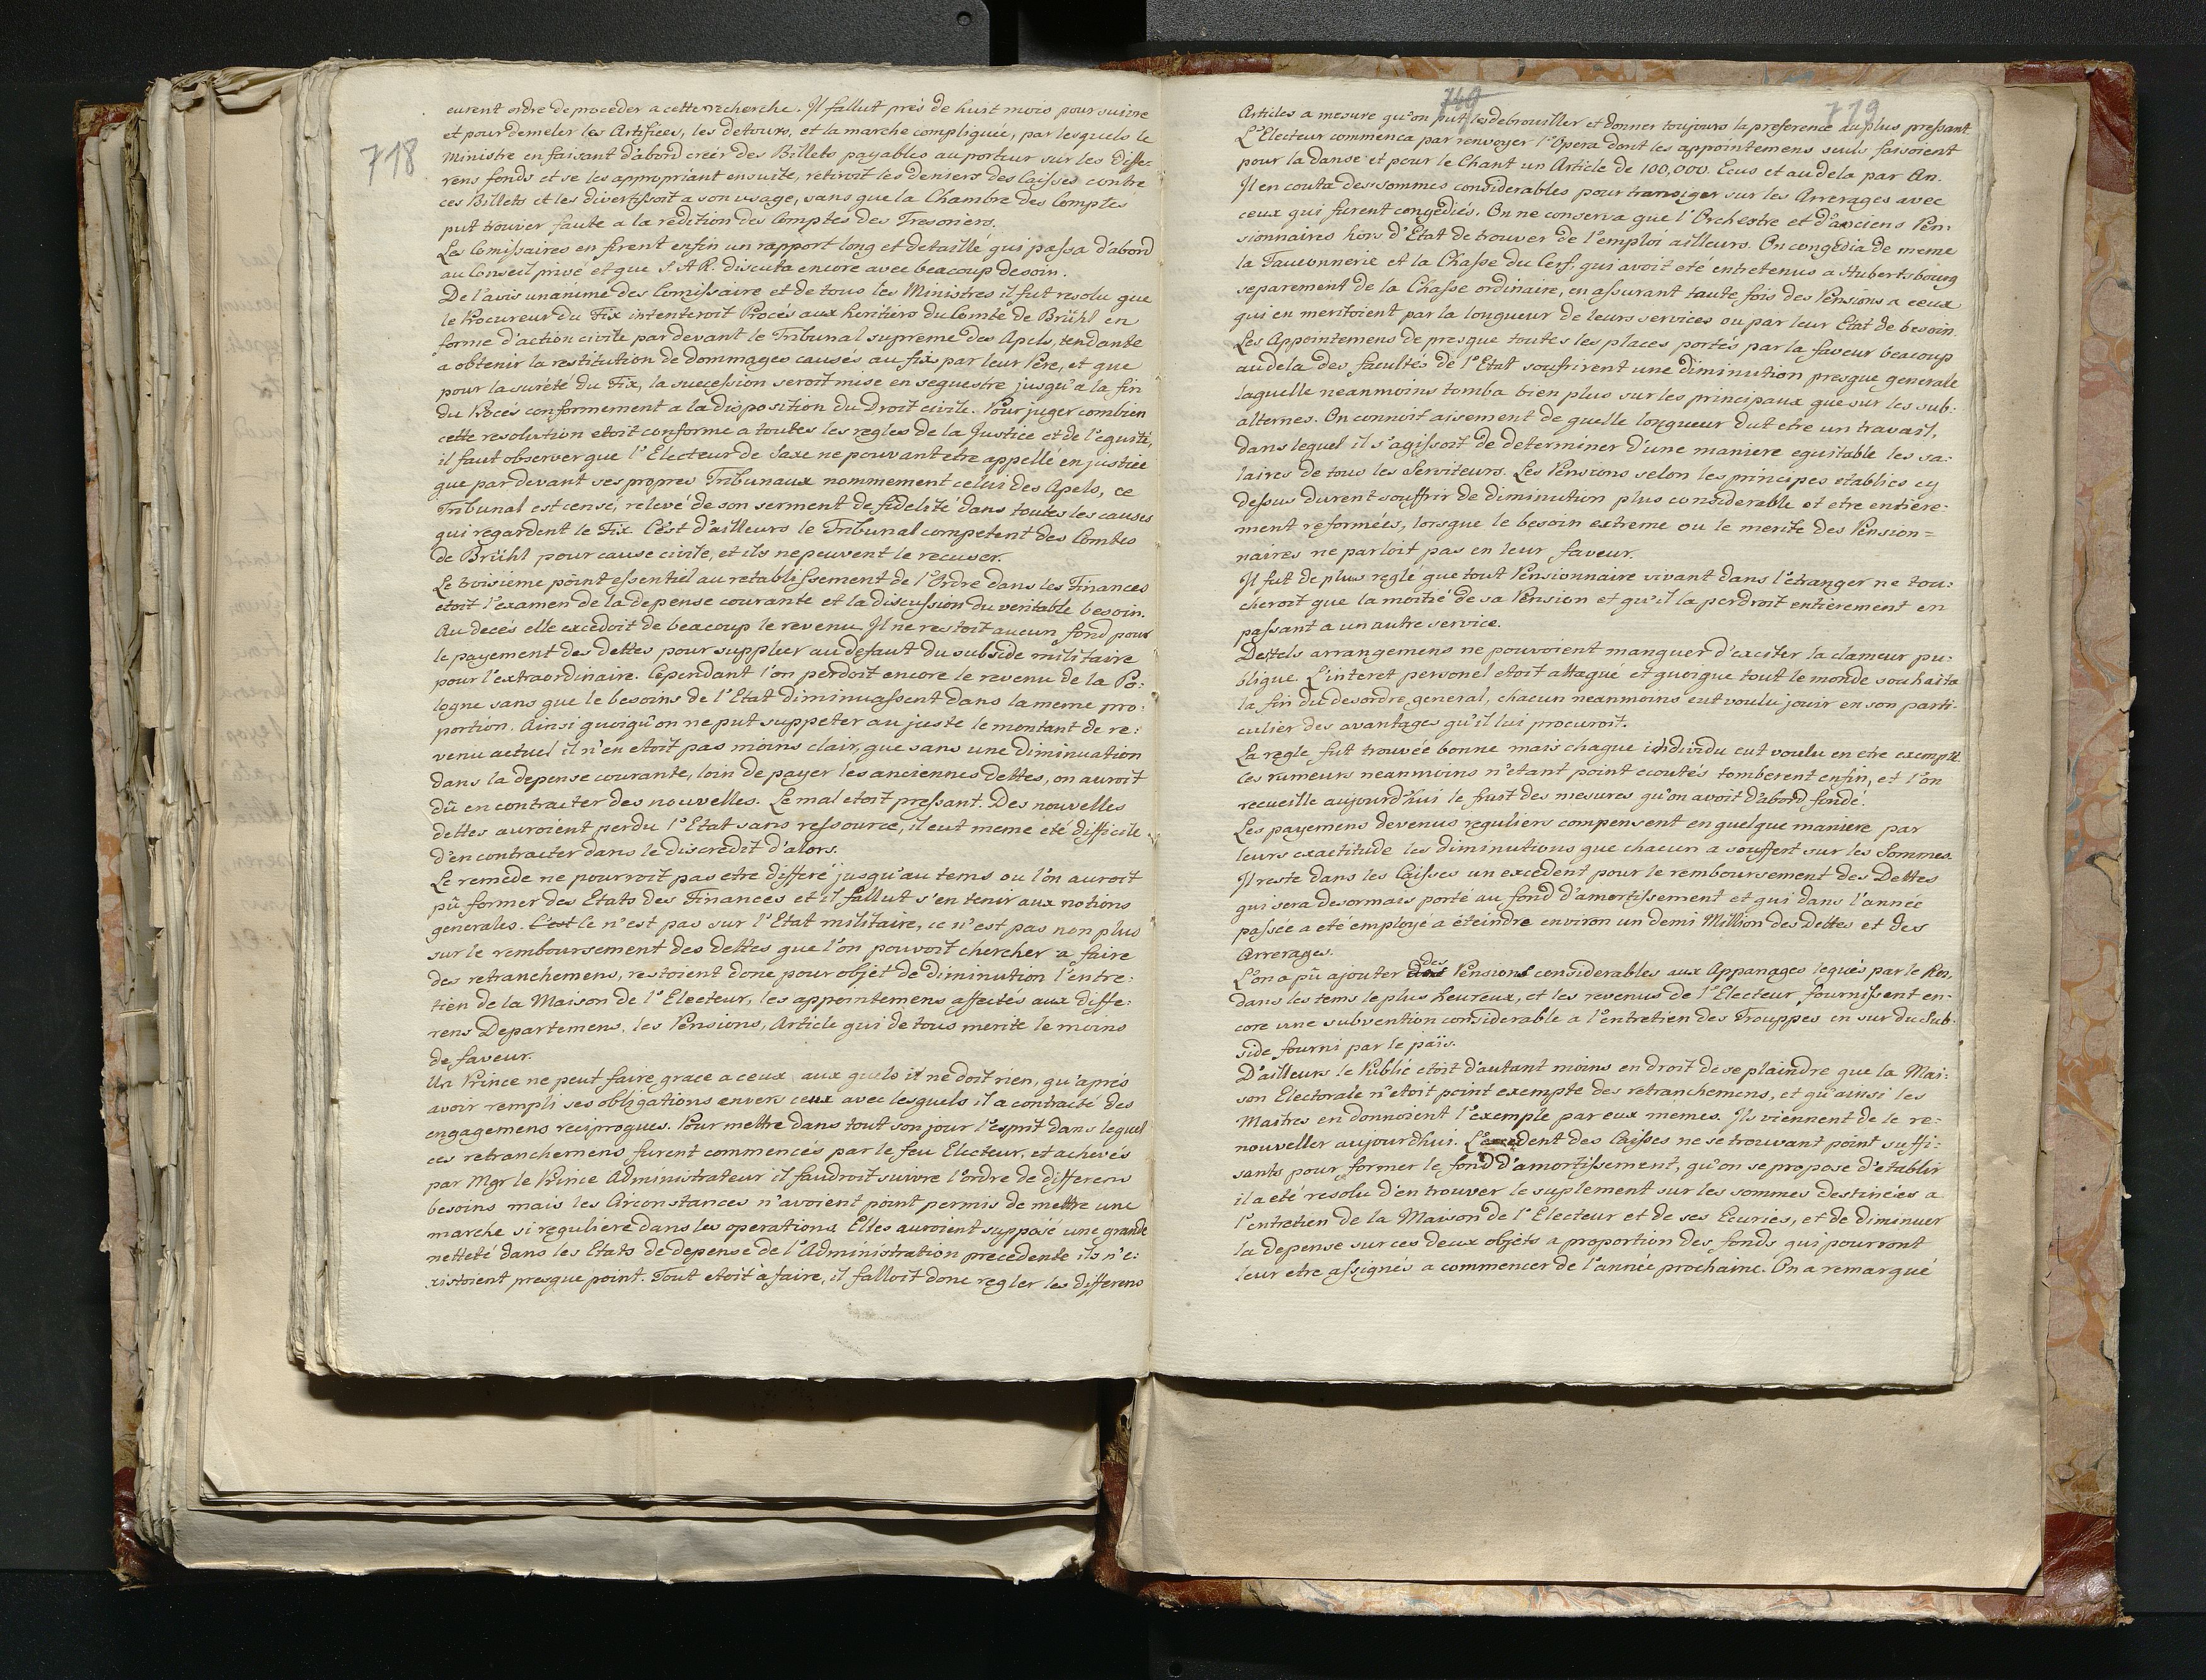 718
eurent ordre de proceder a cette recherche. Il fallut près de huit mois pour suivre
et pour demeler les Artifices, les detours, et la marche compliquée, par lesquels le
Ministre en faisant d'abord creér des Billets payables au porteur sur les diffe-
rens fonds et se les appropriant ensuite, retiroit les deniers des Caisses contre
ces Billets et les divertissoit a son usage, sans que la Chambre des Comptes
put trouver faute a la redition des Comptes des Tresoriers.
Les Comissaires en firent enfin un rapport long et detaillé qui passa d'abord
au Conseil privé et que S. A R. discuta encore avec beaucoup de soin.
De l'avis unanime des Comissaire et de tous les Ministres il fut resolu que
le Procureur du Fix intenteroit Procés aux heritiers du Comte de Brühl en
forme d'action civile par devant le Tribunal supreme des Apels, tendante
a obtenir la restitution de dommages causés au fix par leur Pere, et que
pour la sureté du Fix, la succession seroit mise en sequestre jusqu'a la fin
du Procés conformement a la disposition du Droit civile. Pour juger combien
cette resolution etoit conforme a toutes les regles de la Justice et de l'equité,
il faut observer que l'Electeur de Saxe ne pouvant etre appellé en justice
que par devant ses propres Tribunaux nommement celui des Apels, ce
Tribunal est censé, relevé de son serment de fidelité dans toutes les causes
qui regardent le Fix. C'est d'ailleurs le Tribunal competent des Comtes
de Brühl pour cause civile, et ils ne peuvent le recuser.
Le troisieme point essentiel au retablissement de l'Ordre dans les Finances
etoit l'examen de la depense courante et la discussion du veritable besoin.
Au decés elle excedoit de beacoup le revenu. Il ne restoit aucun fond pour
le payement des dettes pour suppleer au defaut du subside militaire
pour l'extraordinaire. Cependant l'on perdoit encore le revenu de la Po:
logne sans que le besoins de l'Etat diminuassent dans la meme pro:
portion. Ainsi quoiqu'on ne put suppeter au juste le montant de re:
venu actuel il n'en etoit pas moins clair, que sans une diminuation
dans la depense courante, loin de payer les anciennes dettes, on auroit
dû en contracter des nouvelles. Le mal etoit pressant. Des nouvelles
dettes auroient perdu l'Etat sans ressource, il eut meme eté difficile
d'en contracter dans le discredit d'alors.
Le remede ne pourroit pas etre differé jusqu'au tems ou l'on auroit
pû former des Etats des Finances et il fallut s'en tenir aux notions
generales. C'est Ce n'est pas sur l'Etat militaire, ce n'est pas non plus
sur le remboursement des dettes que l'on pouvoit chercher a faire
des retranchemens, restoient donc pour objet de diminution l'entre:
tien de la Maison de l'Electeur, les appointemens affectés aux diffe:
rens Departemens, les Pensions, Article qui de tous merite le moins
de faveur.
Un Prince ne peut faire grace a ceux, aux quels il ne doit rien, qu'aprés
avoir rempli ses obligations envers ceux avec lesquels il a contracté des
engagemens reciproques. Pour mettre dans tout son jour l'esprit dans lequel
ces retranchemens furent commencés par le feu Electeur, et achevés
par Mgr le Prince Administrateur il faudroit suivre l'ordre de differens
besoins mais les Circonstances n'avoient point permis de mettre une
marche si reguliere dans les operations. Elles auroient supposé une grande
netteté dans les Etats de depense de l'Administration precedente ils n'e:
xistoient presque point. Tout etoit a faire, il falloit donc regler les differens
719
Articles a mesure qu'on put les debrouiller et donner toujours la preference au plus pressant.
L'Electeur commenca par renvoyer l'Opera dont les appointemens seuls faisoient
pour la danse et pour le Chant un Article de 100,000. Ecus et au dela par An.
Il en couta des sommes considerables pour transiger sur les Arrerages avec
ceux qui furent congediés. On ne conserva que l'Orchestre et d'anciens Pen:
sionnaires hors d'Etat de trouver de l'emploi ailleurs. On congedia de meme
la Fauconnerie et la Chasse du Cerf, qui avoit eté entretenus a Hubertsbourg
separement de la Chasse ordinaire, en assurant toute fois des Pensions a ceux
qui en meritoient par la longueur de leurs services ou par leur Etat de besoin.
Les Appointemens de presque toutes les places portés par la faveur beaucoup
au dela des facultés de l'Etat soufrirent une diminution presque generale
laquelle neanmoins tomba bien plus sur les principaux que sur les sub:
alternes. On connoit aisement de quelle longueur dut etre un travail,
dans lequel il s'agissoit de determiner d'une maniere equitable les sa:
laires de tous les Serviteurs. Les Pensions selon les principes etablies cy
dessus durent souffrir de diminution plus considerable et etre entiere:
ment reformées, lorsque le besoin extreme ou le merite des Pension=
naires ne parloit pas en leur faveur.
Il fut de plus reglé que tout Pensionnaire vivant dans l'etranger ne tou:
cheroit que la moitié de sa Pension et qu'il la perdroit entierement en
passant a un autre service.
Des tels arrangemens ne pouvoient manquer d'exciter la clameur pu:
blique. L'interet personel etoit attaqué et quoique tout le monde souhaita
la fin du desordre general, chacun neanmoins eut voulu jouir en son parti
culier des avantages qu'il lui procuroit.
La regle fut trouvée bonne mais chaque individu eut voulu en etre exempté.
Ces rumeurs neanmoins n'etant point ecoutés tomberent enfin, et l'on
recueille aujourd'hui le fruit des mesures qu'on avoit d'abord fondé.
Les payemens devenus reguliers compensent en quelque maniere par
leurs exactitude les diminutions que chacun a souffert sur les Sommes.
Il reste dans les Caisses un excedent pour le remboursement des Dettes
qui sera desormais porté au fond d'amortissement et qui dans l'année
passée a eté employé a éteindre environ un demi Million des Dettes et des
Arrerages.
L'on a pû ajouter des Pensions considerables aux Appanages legués par le Roi
dans les tems le plus heureux, et les revenus de l'Electeur fournissent en-
core une subvention considerable a l'entretien des Trouppes en sur du Sub-
side fourni par le païs.
D'ailleurs le Public etoit d'autant moins en droit de se plaindre que la Mai:
son Electorale n'etoit point exempte des retranchemens, et qu'ainsi les
Maitres en donnoient l'exemple par eux memes. Ils viennent de le re:
nouveller aujourdhui. L'excedent des Caisses ne se trouvant point suffi:
sants pour former le fond d'amortissement, qu'on se propose d'etablir
il a eté resolu d'en trouver le suplement sur les sommes destinées a
l'entretien de la Maison de l'Electeur et de ses Ecuries, et de diminuer
la depense sur ces deux objets a proportion des fonds qui pourront
leur etre assignés a commencer de l'année prochaine. On a remarqué